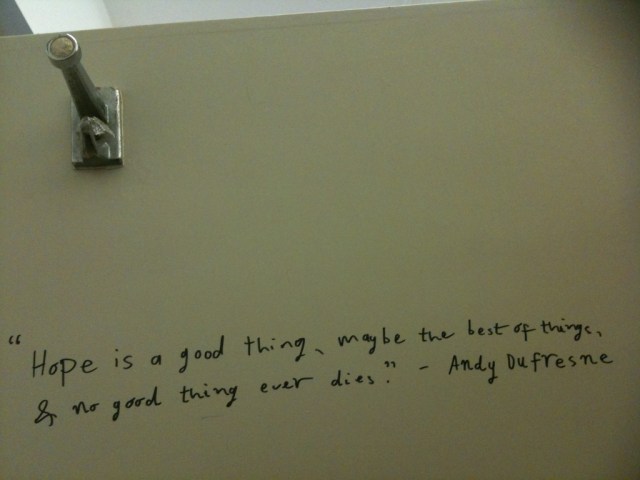 “Hope is a good thing, maybe the best of things,
& no good thing ever dies.” - Andy Dufresne